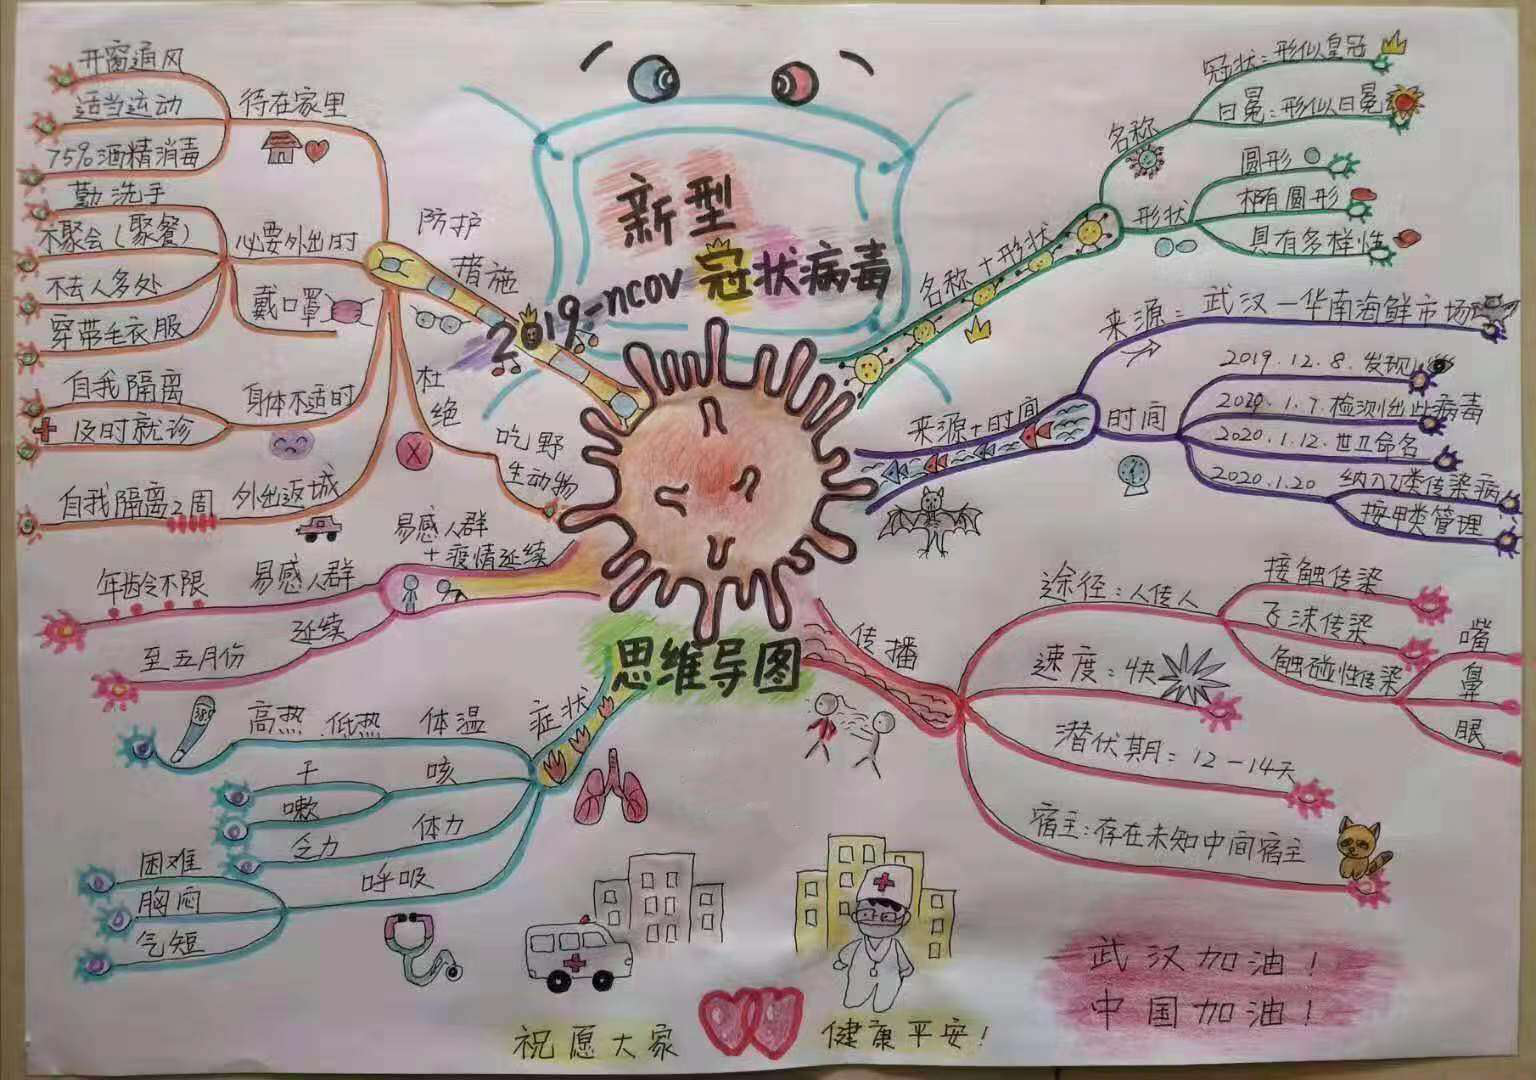 新型
2019-ncov 冠状病毒
思维导图
名称+形状
名称
冠状:形似皇冠
日冕:形似日冕
形状
圆形
椭圆形
具有多样性
来源+时间
来源:武汉一华南海鲜市场
时间
2019.12.8.发现
2020.1.7.检测出此病毒
2020.1.12.世卫命名
2020.1.20 纳入乙类传染病
按甲类管理
传播
途径:人传人
接触传染
飞沫传染
触碰性传染
嘴
鼻
眼
速度:快
潜伏期:12-14天
宿主:存在未知中间宿主
症状
体温
高热 低热
38°
咳
干
嗽
体力
乏力
呼吸
困难
胸闷
气短
易感人群
+疫情延续
易感人群
年龄不限
延续
至五月份
防护
措施
待在家里
开窗通风
适当运动
75%酒精消毒
必要外出时
勤洗手
不聚会(聚餐)
不去人多处
穿带毛衣服
戴口罩
身体不适时
自我隔离
及时就诊
外出返城
自我隔离2周
杜绝
吃野
生动物
武汉加油!
中国加油!
祝愿大家 健康平安!